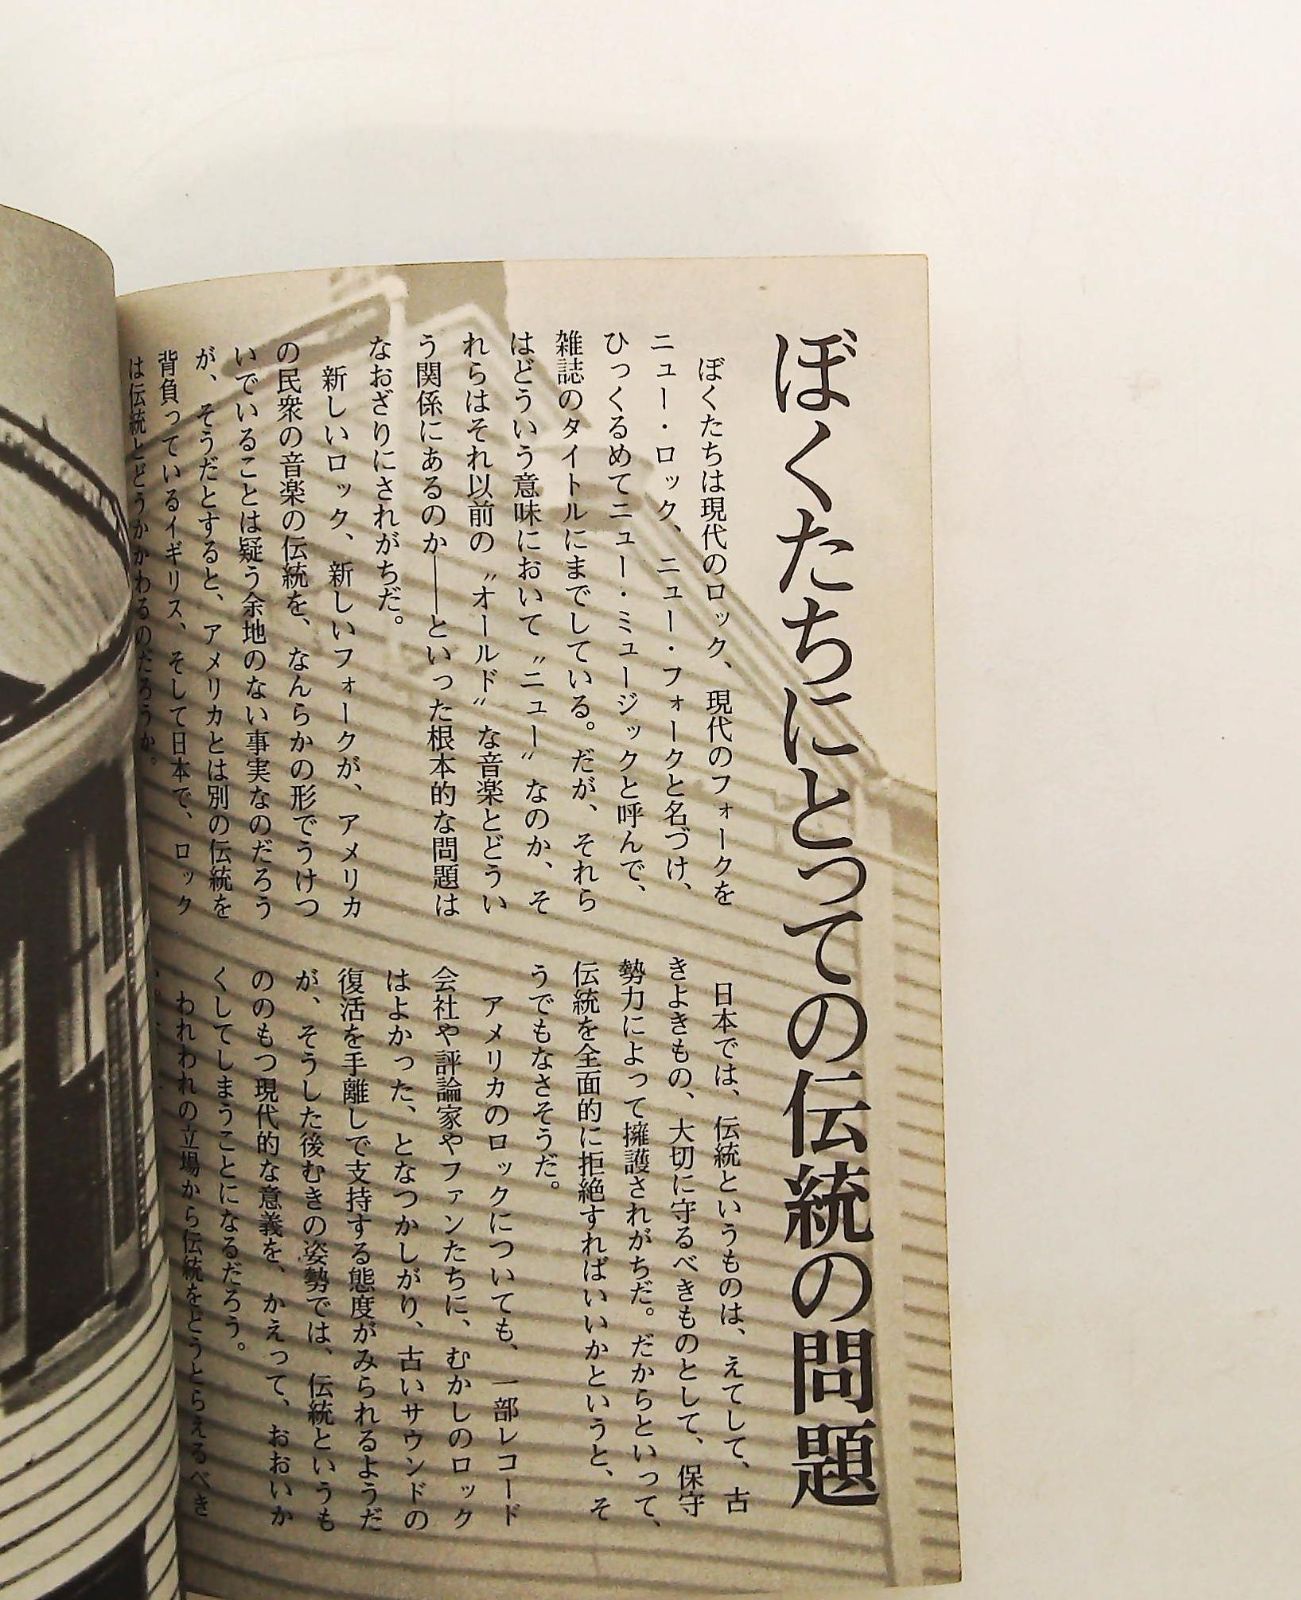 ぼくたちにとっての伝統の問題
ぼくたちは現代のロック、現代のフォークを
ニュー・ロック、ニュー・フォークと名づけ、
ひっくるめてニュー・ミュージックと呼んで、
雑誌のタイトルにまでしている。だが、それら
はどういう意味において〝ニュー〟なのか、そ
れらはそれ以前の〝オールド〟な音楽とどうい
う関係にあるのか――といった根本的な問題は
なおざりにされがちだ。
新しいロック、新しいフォークが、アメリカ
の民衆の音楽の伝統を、なんらかの形でうけつ
いでいることは疑う余地のない事実なのだろう
が、そうだとすると、アメリカとは別の伝統を
背負っているイギリス、そして日本で、ロック
は伝統とどうかかわるのだろうか。
日本では、伝統というものは、えてして、古
きよきもの、大切に守るべきものとして、保守
勢力によって擁護されがちだ。だからといって、
伝統を全面的に拒絶すればいいかというと、そ
うでもなさそうだ。
アメリカのロックについても、一部レコード
会社や評論家やファンたちに、むかしのロック
はよかった、となつかしがり、古いサウンドの
復活を手離しで支持する態度がみられるようだ
が、そうした後むきの姿勢では、伝統というも
ののもつ現代的な意義を、かえって、おおいか
くしてしまうことになるだろう。
われわれの立場から伝統をどうとらえるべき